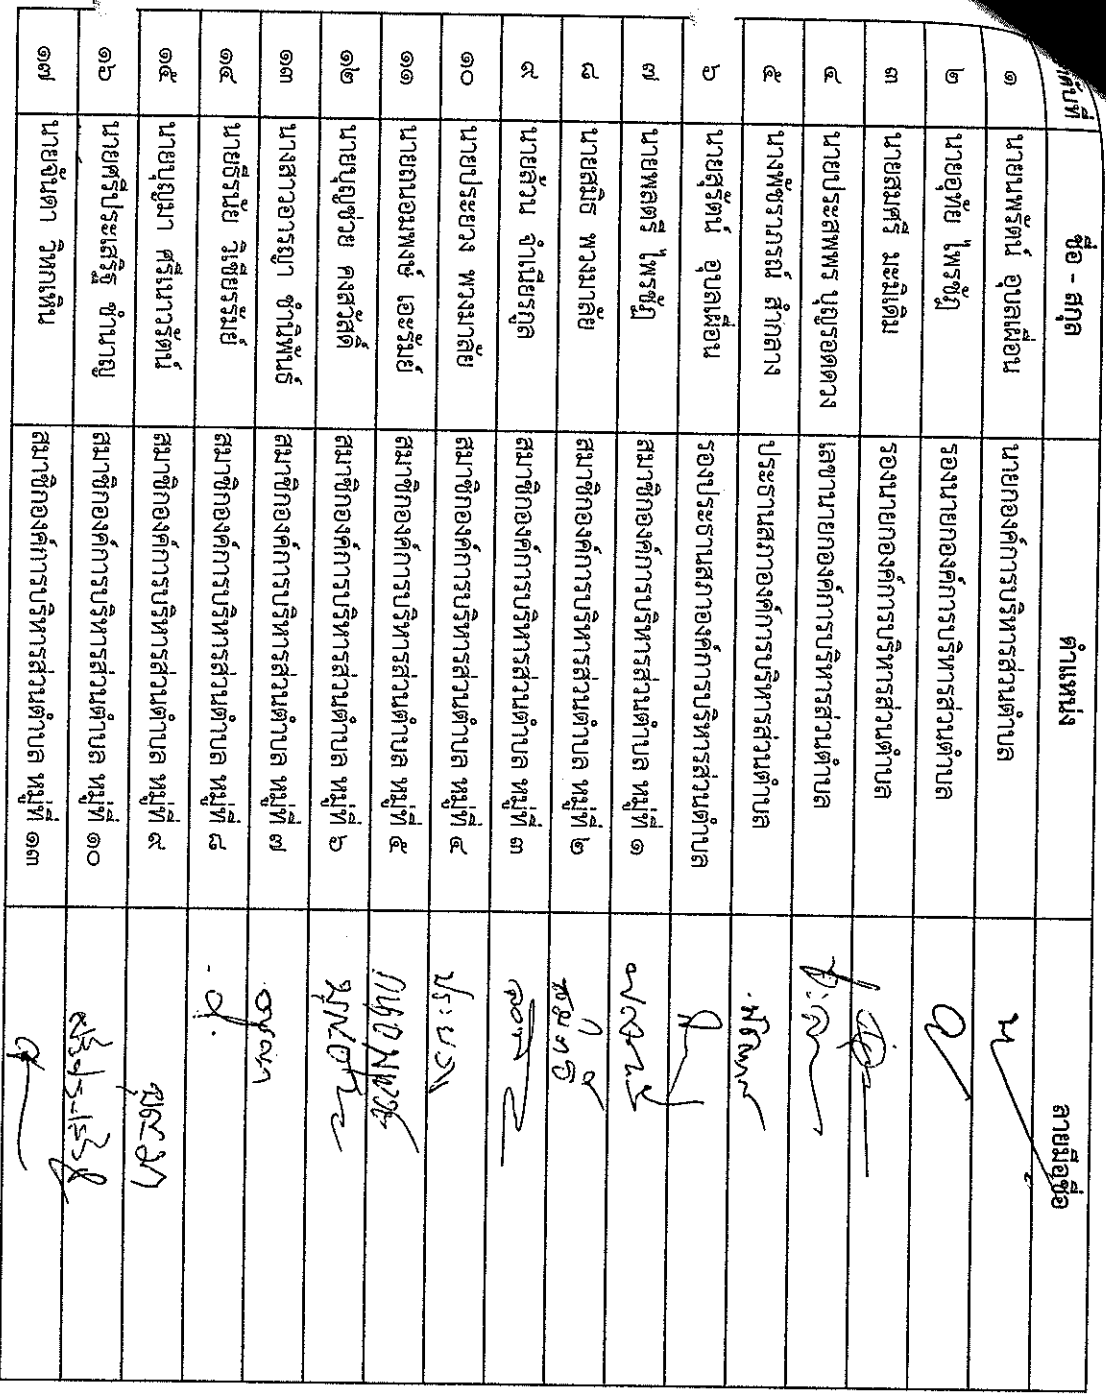 ลำดับที่ ชื่อ - สกุล ตำแหน่ง ลายมือชื่อ
๑ นายนพรัตน์ อุบลเผื่อน นายกองค์การบริหารส่วนตำบล
๒ นายอุทัย ไพรชัฎ รองนายกองค์การบริหารส่วนตำบล
๓ นายสมศรี นะมิเดิม รองนายกองค์การบริหารส่วนตำบล
๔ นายประสพพร บุญรอดดวง เลขานายกองค์การบริหารส่วนตำบล
๕ นางพัชราภรณ์ สำกลาง ประธานสภาองค์การบริหารส่วนตำบล
๖ นายสุรัตน์ อุบลเผื่อน รองประธานสภาองค์การบริหารส่วนตำบล
๗ นายพลตรี ไพรชัฎ สมาชิกองค์การบริหารส่วนตำบล หมู่ที่ ๑
๘ นายสมิธ พวงมาลัย สมาชิกองค์การบริหารส่วนตำบล หมู่ที่ ๒
๙ นายล้วน จำเนียรกูล สมาชิกองค์การบริหารส่วนตำบล หมู่ที่ ๓
๑๐ นายประยวง พวงมาลัย สมาชิกองค์การบริหารส่วนตำบล หมู่ที่ ๔ ประยวง
๑๑ นายถนอมพงษ์ เอะรัมย์ สมาชิกองค์การบริหารส่วนตำบล หมู่ที่ ๕
๑๒ นายบุญช่วย คงสวัสดิ์ สมาชิกองค์การบริหารส่วนตำบล หมู่ที่ ๖
๑๓ นางสาวอารญา ชำนิพันธ์ สมาชิกองค์การบริหารส่วนตำบล หมู่ที่ ๗
๑๔ นายธีรนัย วิเชียรรัมย์ สมาชิกองค์การบริหารส่วนตำบล หมู่ที่ ๘
๑๕ นายบุญมา ศรีเนาวรัตน์ สมาชิกองค์การบริหารส่วนตำบล หมู่ที่ ๙ บุญมา
๑๖ นายศรีประเสริฐ ชำนาญ สมาชิกองค์การบริหารส่วนตำบล หมู่ที่ ๑๐
๑๗ นายจันดา วิหกเหิน สมาชิกองค์การบริหารส่วนตำบล หมู่ที่ ๑๓